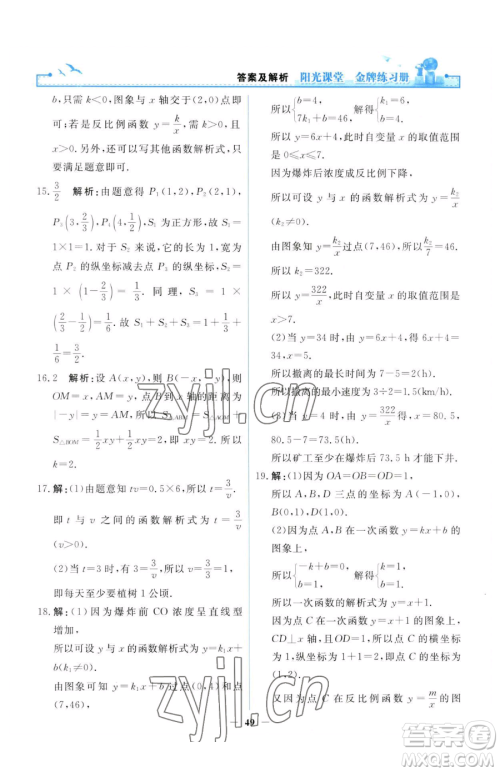 答案及解析 阳光课堂 金牌练习册
b,只需 k<0,图象与 x 轴交于(2,0)点即
可;若是反比例函数解析式 y=k/x,则需 k<0,且
x>0.另外,还可以写其他函数解析式,只要
满足题意即可.
15. 3/2 解析:由题意得 P₁(1,2),P₂(2,1),
P₃(3,2/3),P₄(4,1/2),S₁ 为正方形,故 S₁=
1×1=1. 对于 S₂ 来说,它的长为 1,宽为
点 P₂ 的纵坐标减去点 P₃ 的纵坐标,S₂=
1×(1-2/3)=1/3. 同理,S₃=1×
(2/3-1/2)=1/6. 故 S₁+S₂+S₃=1+1/3+
1/6=3/2.
16. 2 解析:设 A(x,y),则 B(-x,-y),所以
OM=x,AM=y,点 B 到 x 轴的距离为
|-y|=y=AM,所以 S△ABM=S△AOM+
S△BOM=1/2xy+1/2xy=2,即 xy=2,所以
k=2.
17. 解:(1)由题意知 tv=0.5×6,所以 t=3/v,
即 t 与 v 之间的函数解析式为 t=3/v
(v>0).
(2)当 t=3 时,3=3/v,所以 v=1.
即每天至少要植树 1 公顷.
18. 解:(1)因为爆炸前 CO 浓度呈直线型
增加,
所以可设 y 与 x 的函数解析式为 y=k₁x+
b(k₁≠0).
由图象可知 y=k₁x+b 过点(0,4)和点
(7,46),
所以{b=4, 7k₁+b=46. 解得{k₁=6, b=4.
所以 y=6x+4,此时自变量 x 的取值范围
是 0≤x≤7.
因为爆炸后浓度成反比例下降,
所以可设 y 与 x 的函数解析式为 y=k₂/x
(k₂≠0).
由图象知 y=k₂/x 过点(7,46),所以 k₂/7=46.
所以 k₂=322.
所以 y=322/x,此时自变量 x 的取值范围是
x>7.
(2)当 y=34 时,由 y=6x+4 得,6x+4=
34,x=5.
所以撤离的最长时间为 7-5=2(h).
所以撤离的最小速度为 3÷2=1.5(km/h).
(3)当 y=4 时,由 y=322/x 得 x=80.5,
80.5-7=73.5(h).
所以矿工至少在爆炸后 73.5 h 才能下井.
19. 解:(1)因为 OA=OB=OD=1,
所以 A,B,D 三点的坐标为 A(-1,0),
B(0,1),D(1,0).
(2)因为点 A,B 在一次函数 y=kx+b 的
图象上,
所以{-k+b=0, b=1. 解得{k=1, b=1.
所以一次函数的解析式为 y=x+1.
因为点 C 在一次函数 y=x+1 的图象上,
CD⊥x 轴,且 OD=1,所以点 C 的横坐标
为 1,代入 y=x+1,得 y=2,即点 C 的坐标为
(1,2).
又因为点 C 在反比例函数 y=m/x 的图
49
zyjl.cn
zyjl.cn